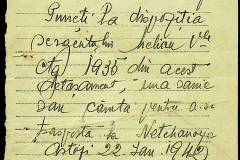 Puncti la dispoziția
sergentului Melian Vle
ctg 1935 din acest
detașament, una sanie
san canta pentru a-se
transporta la Netchanoya
Astăzi 22 Ian. 1942